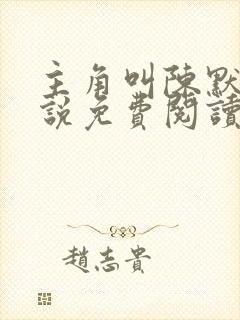 主角叫陳默
說免費閱讀
趙志貴